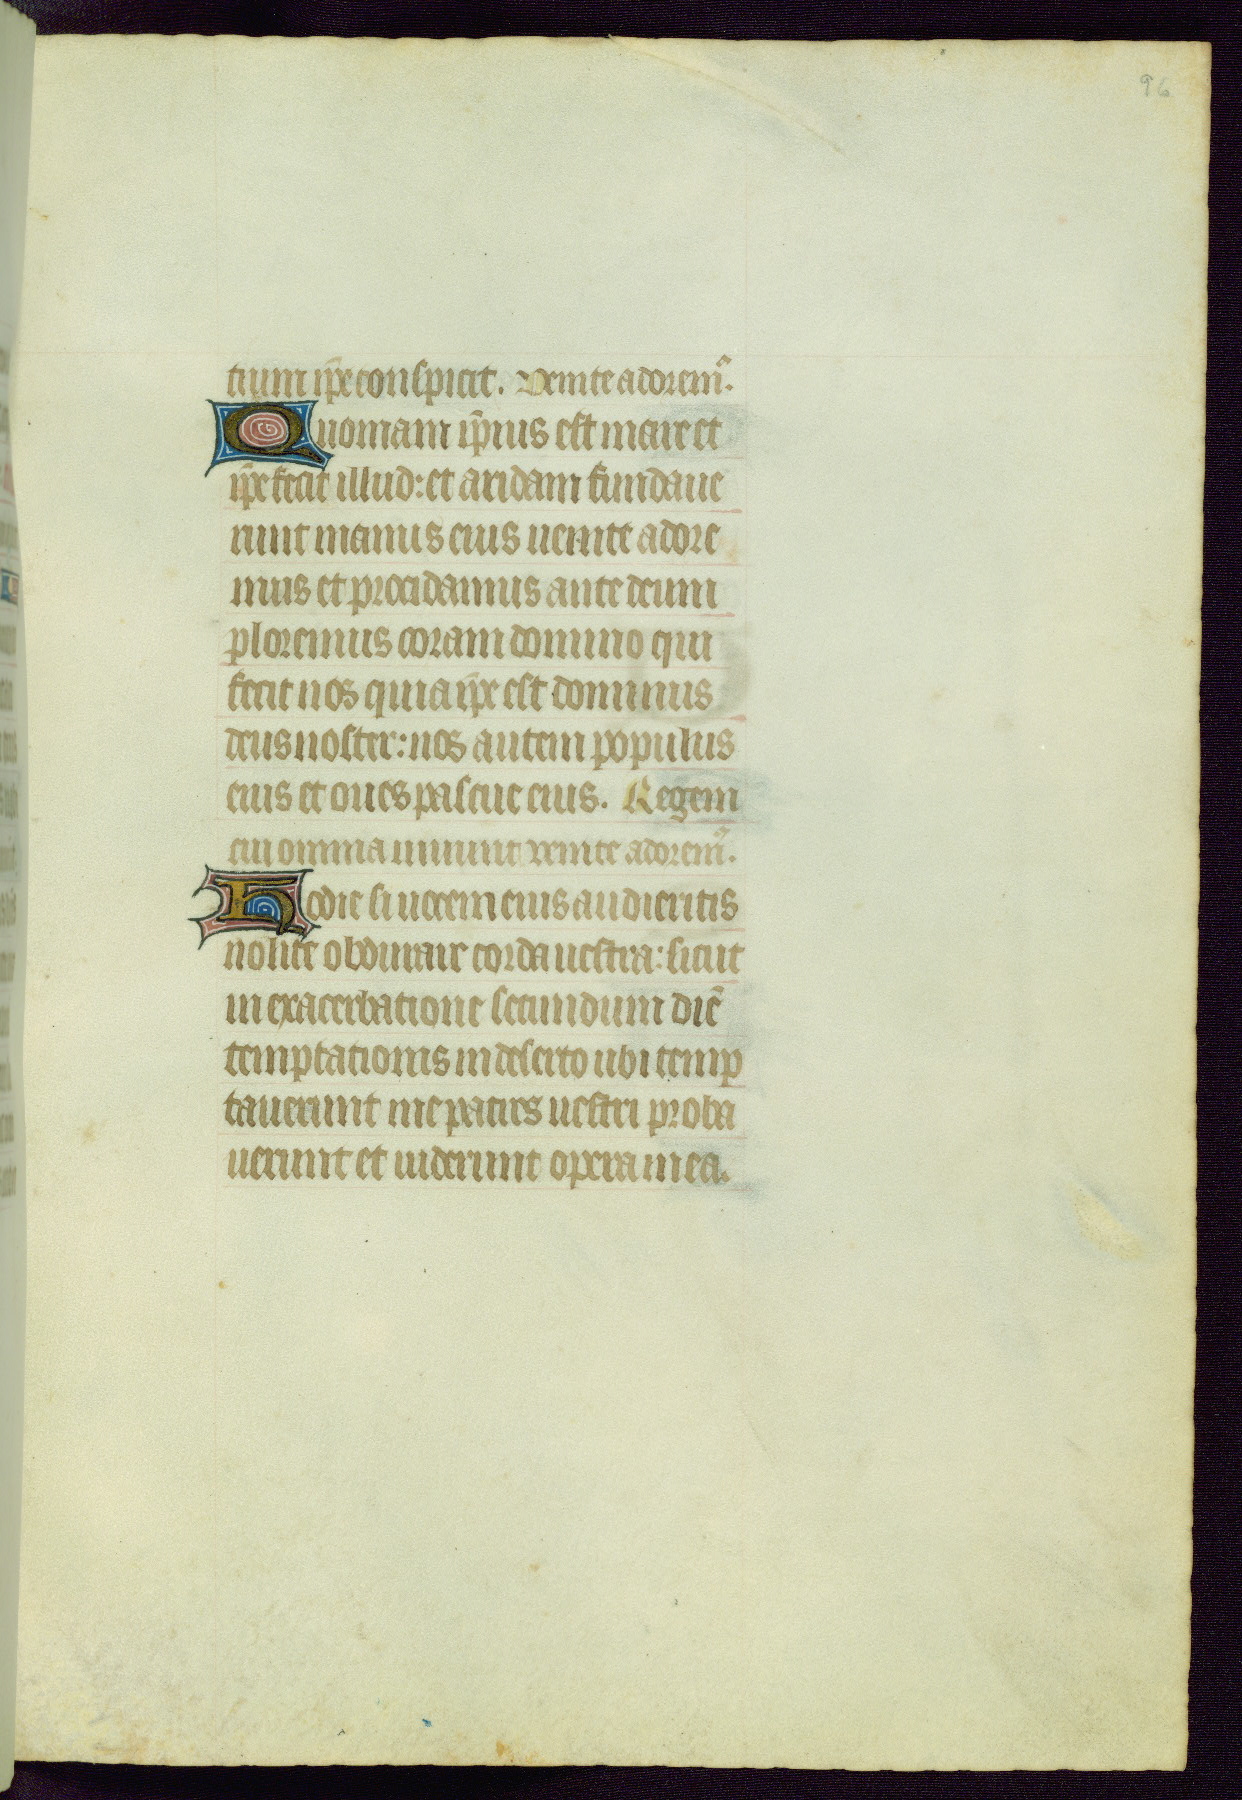 96
tium ip̄e conspicit. Venite adorem᷒.
Quoniam ip̄ius est mare et
ip̄e fecit illud: et aridam fundaue
runt manus eius uenite adore
mus et procidamus ante deum
ploremus coram domino qui
fecit nos quia ip̄e est dominus
deus noster: nos autem populus
eius et oues pascue eius. Regem
cui omnia uiuunt venite adorem᷒.
Hodie si uocem eius audieritis
nolite obdurare corda uestra: sicut
in exacerbatione secundum diē
temptationis in deserto ubi temp
tauerunt me patres uestri proba
uerunt et uiderunt opera mea.